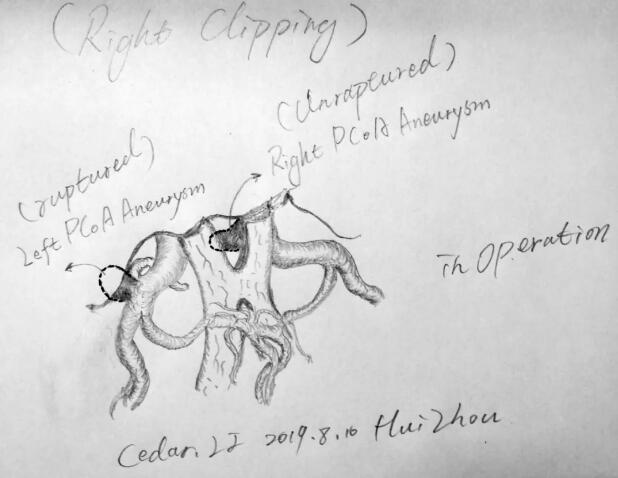 (Right Clipping)
(Unraptured)
Right PCoA Aneurysm
(ruptured)
Left PCoA Aneurysm
in Operation
Cedar. LI 2019.8.10 HuiZhou